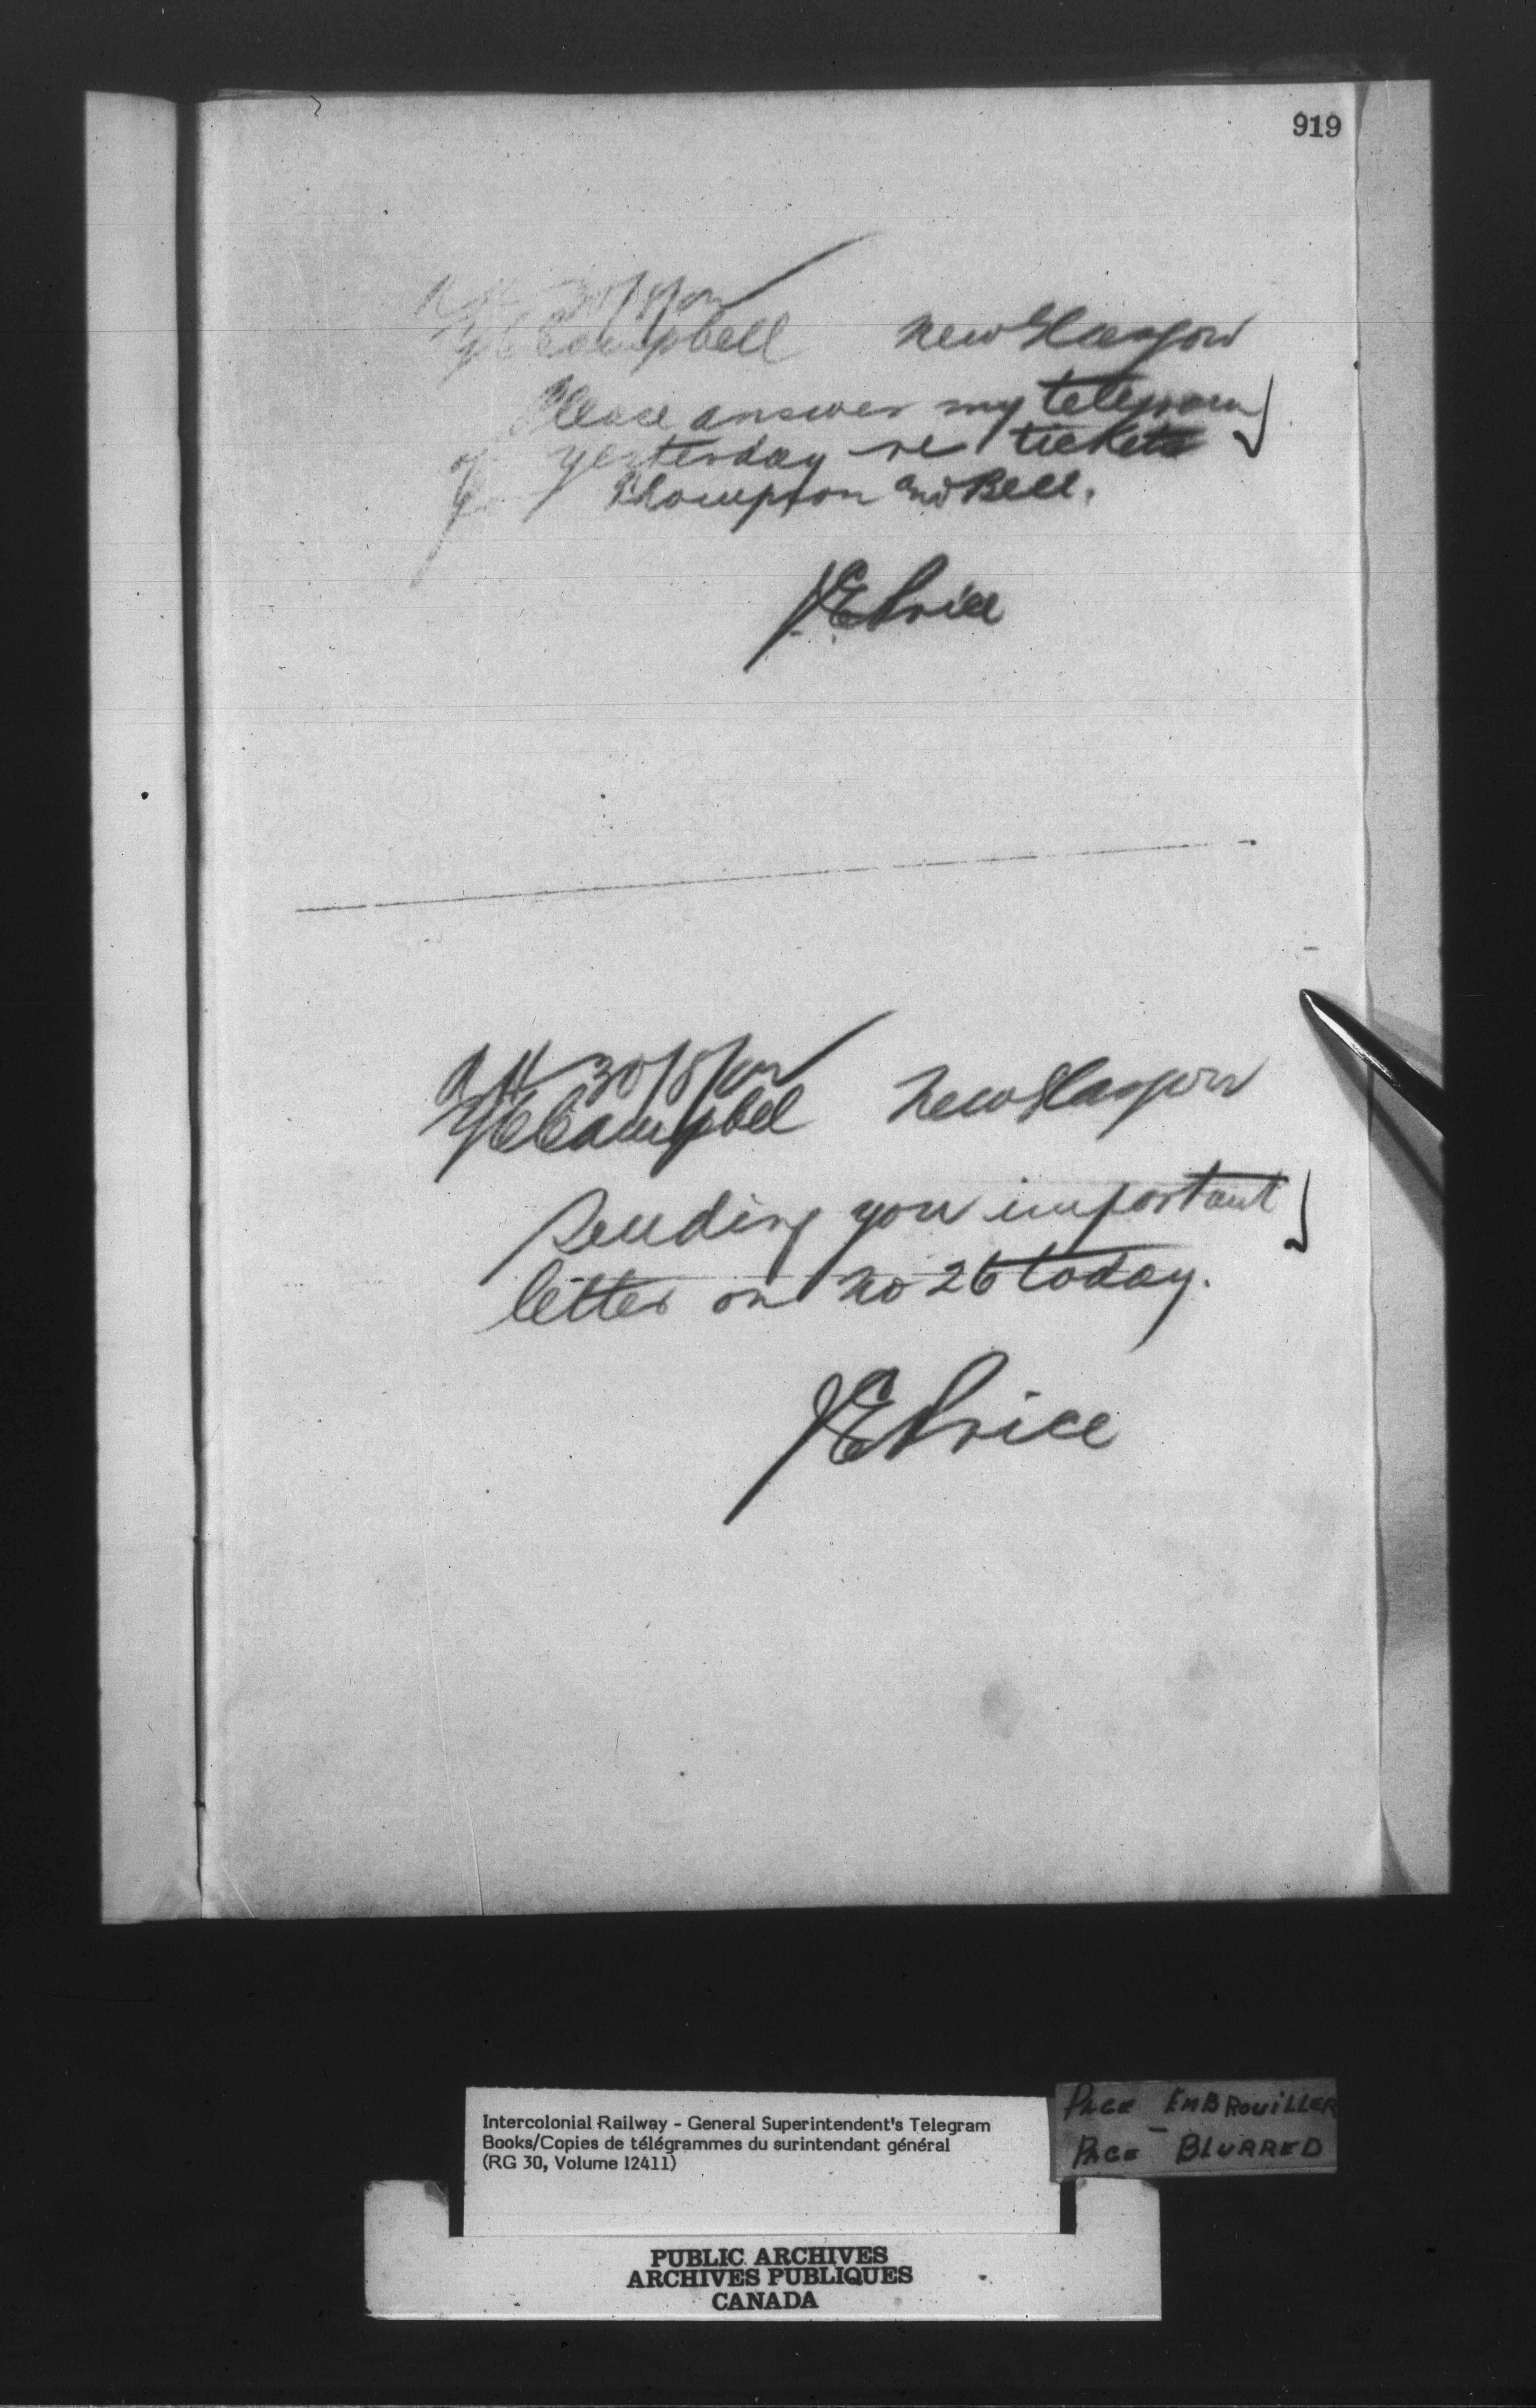 919
30/8/00
YC Campbell New Glasgow
Please answer my telegram
of yesterday re tickets
for Thompson and Bell.
JE Price
30/8/00
YC Campbel New Glasgow
Sending you important
letter on No 26 today.
JE Price
Intercolonial Railway - General Superintendent's Telegram
Books/Copies de télégrammes du surintendant général
(RG 30, Volume 12411)
PAGE EMBROUILLER
PAGE BLURRED
PUBLIC ARCHIVES
ARCHIVES PUBLIQUES
CANADA